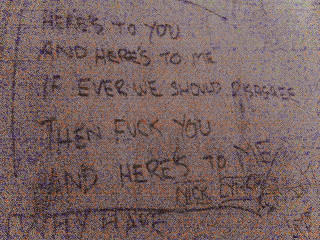 HERE'S TO YOU
AND HERE'S TO ME
IF EVER WE SHOULD DISAGREE
THEN FUCK YOU
AND HERE'S TO ME
NICK
HAVE